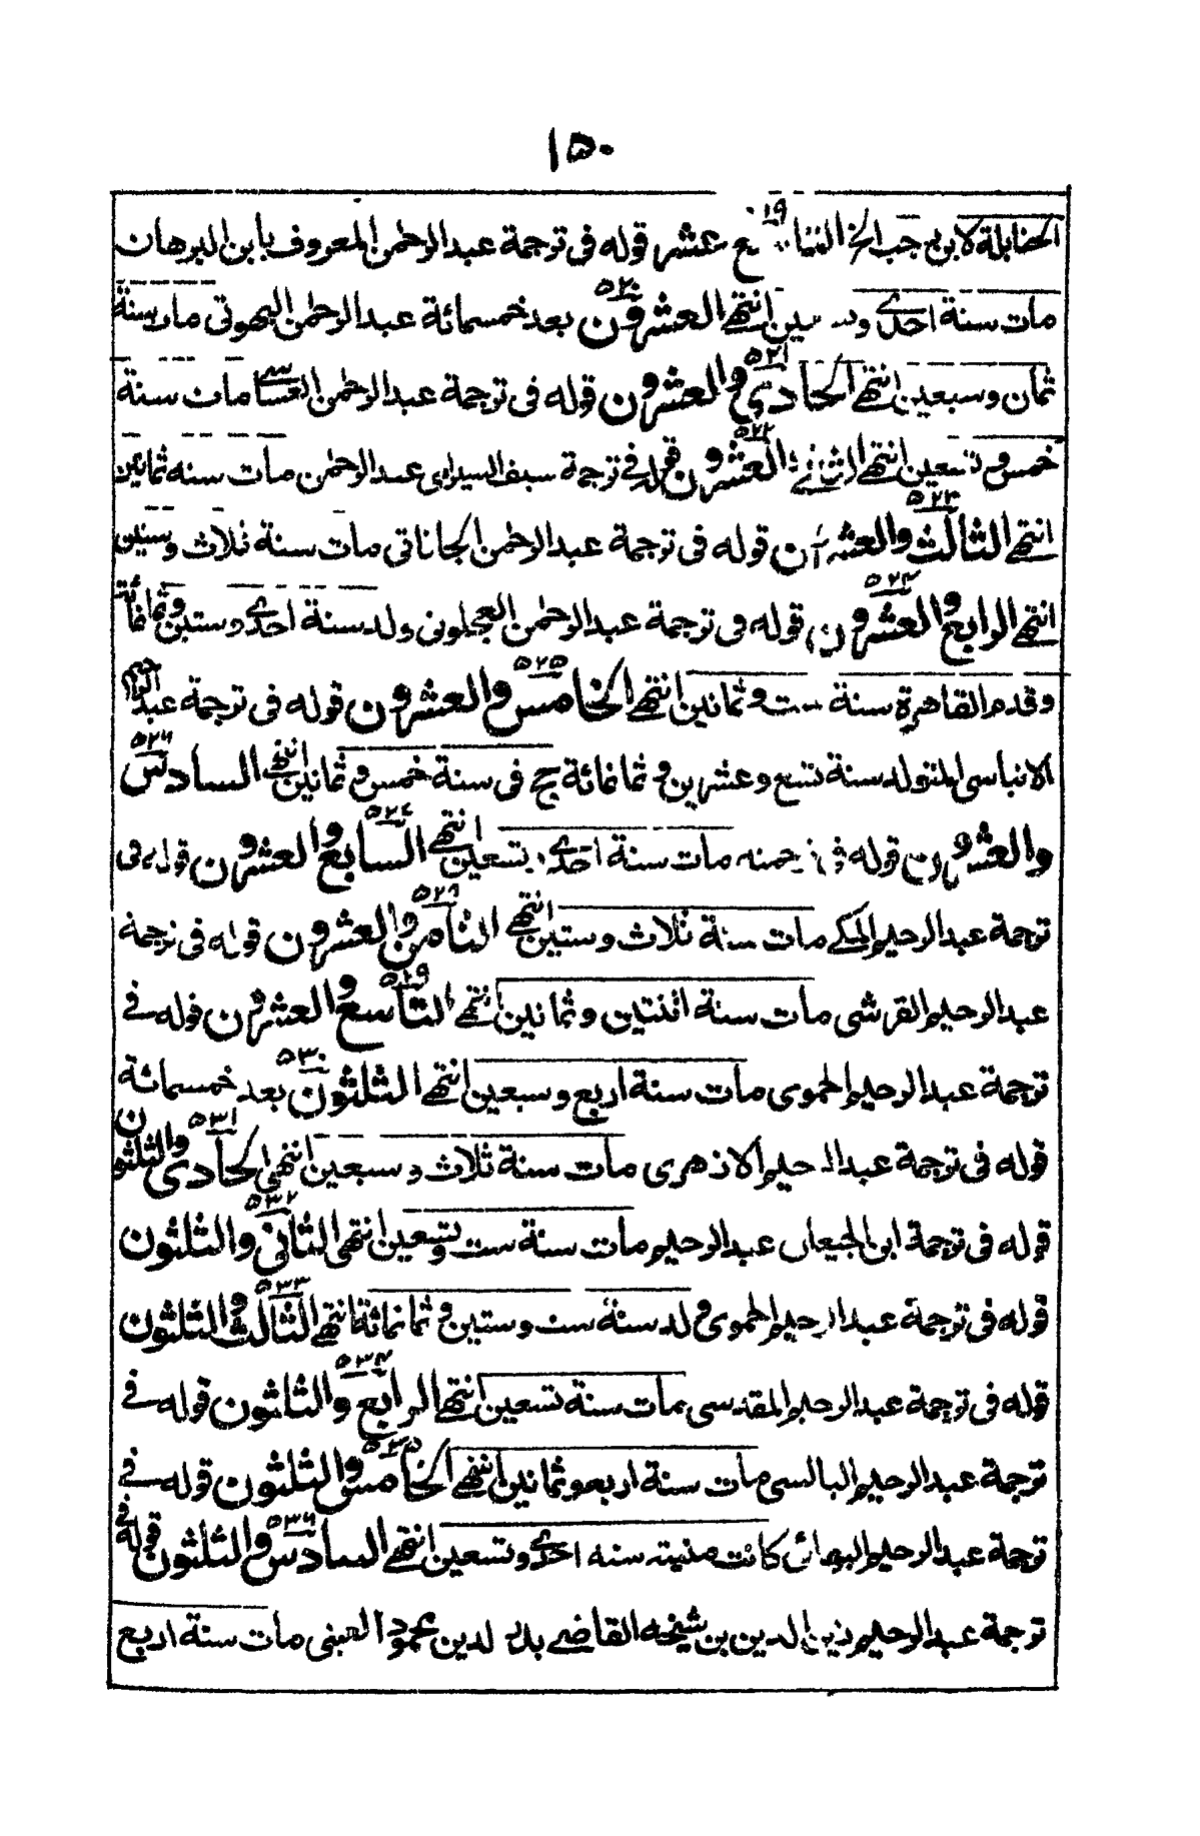 ١٥٠
الحنابلة لابن رجب الخ التاسع عشر قوله فى ترجمة عبدالرحمن المعروف بابن البرهان
مات سنة احدے وسـ ـين انتهے العشرون بعد خمسمائة عبدالرحمن البهوتى مات سنة
ثمان وسبعين انتهے الحادي والعشرون قوله فى ترجمة عبدالرحمن مات سنة
خمس وتسعين انتهے الثانے والعشرون قوله فے ترجمة سبف السيرامى عبدالرحمن مات سنه ثمانين
انتهے الثالث والعشرون قوله فى ترجمة عبدالرحمن الجاناتى مات سنة ثلاث وستين
انتهے الرابع والعشرون قوله فى ترجمة عبدالرحمن العجلونى ولد سنة احدے وستين وثمانمائة
وقدم القاهرة سنة ست وثمانين انتهے الخامس والعشرون قوله فى ترجمة عبدالرحيم
الانباسى المتولد سنة تسع وعشرين وثمانمائة حج فى سنة خمس وثمانين انتهے السادس
والعشرون قوله فى ترجمته مات سنة احدے وتسعين انتهے السابع والعشرون قوله فى
ترجمة عبدالرحيم المكے مات سنة ثلاث وستين انتهے الثامن والعشرون قوله فى ترجمة
عبدالرحيم القرشى مات سنة اثنتين وثمانين انتهے التاسع والعشرون قوله فے
ترجمة عبدالرحيم الحموى مات سنة اربع وسبعين انتهے الثلثون بعد خمسمائة
قوله فى ترجمة عبدالرحيم الازهرى مات سنة ثلاث وسبعين انتهى الحادي والثلثون
قوله فى ترجمة ابن الجيعان عبدالرحيم مات سنة ست وتسعين انتهى الثانى والثلثون
قوله فى ترجمة عبدالرحيم الحموى ولد سنة ست وستين وثمانمائة انتهے الثالث والثلثون
قوله فى ترجمة عبدالرحيم المقدسى مات سنة تسعين انتهے الرابع والثلثون قوله فے
ترجمة عبدالرحيم البالسى مات سنة اربع وثمانين انتهے الخامس والثلثون قوله فے
ترجمة عبدالرحيم كانت منيته سنه احدے وتسعين انتهے السادس والثلثون قوله فے
ترجمة عبدالرحيم زين الدين بن شيخه القاضے بدر الدين محمود العينى مات سنة اربع